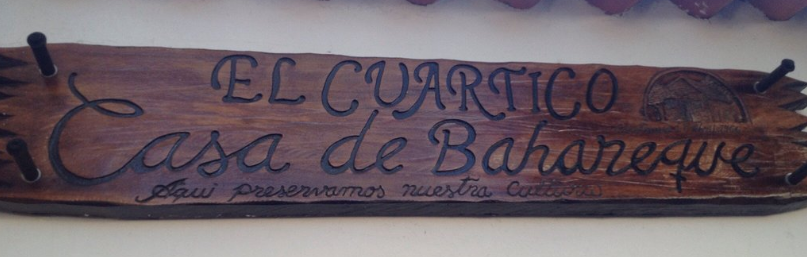 EL CUARTICO
Casa de Bahareque
Aqui preservamos nuestra Cultura